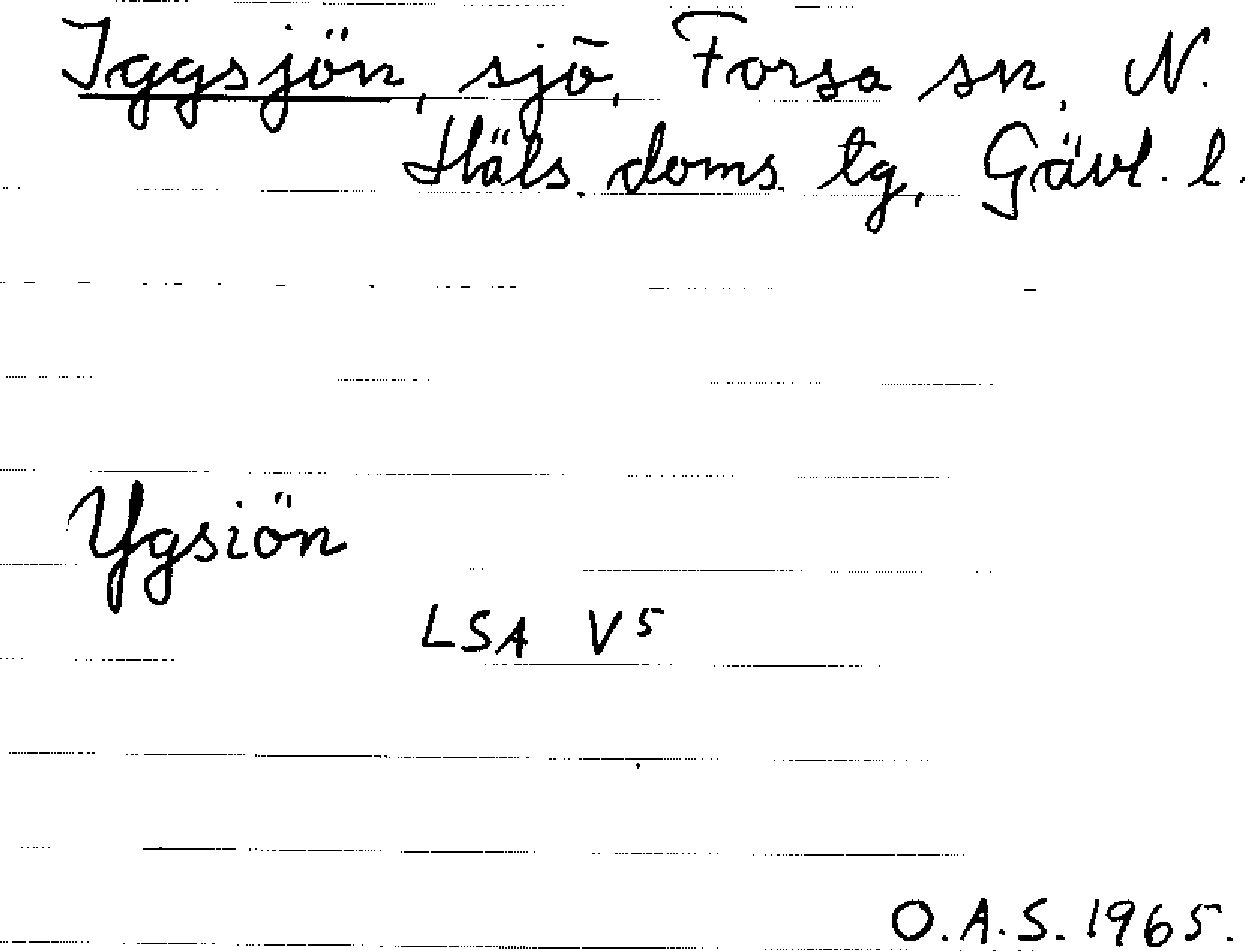 Iggsjön, sjö, Forsa sn, N.
Häls. doms. tg, Gävl. l.
Ygsiön
LSA V5
O.A.S. 1965.